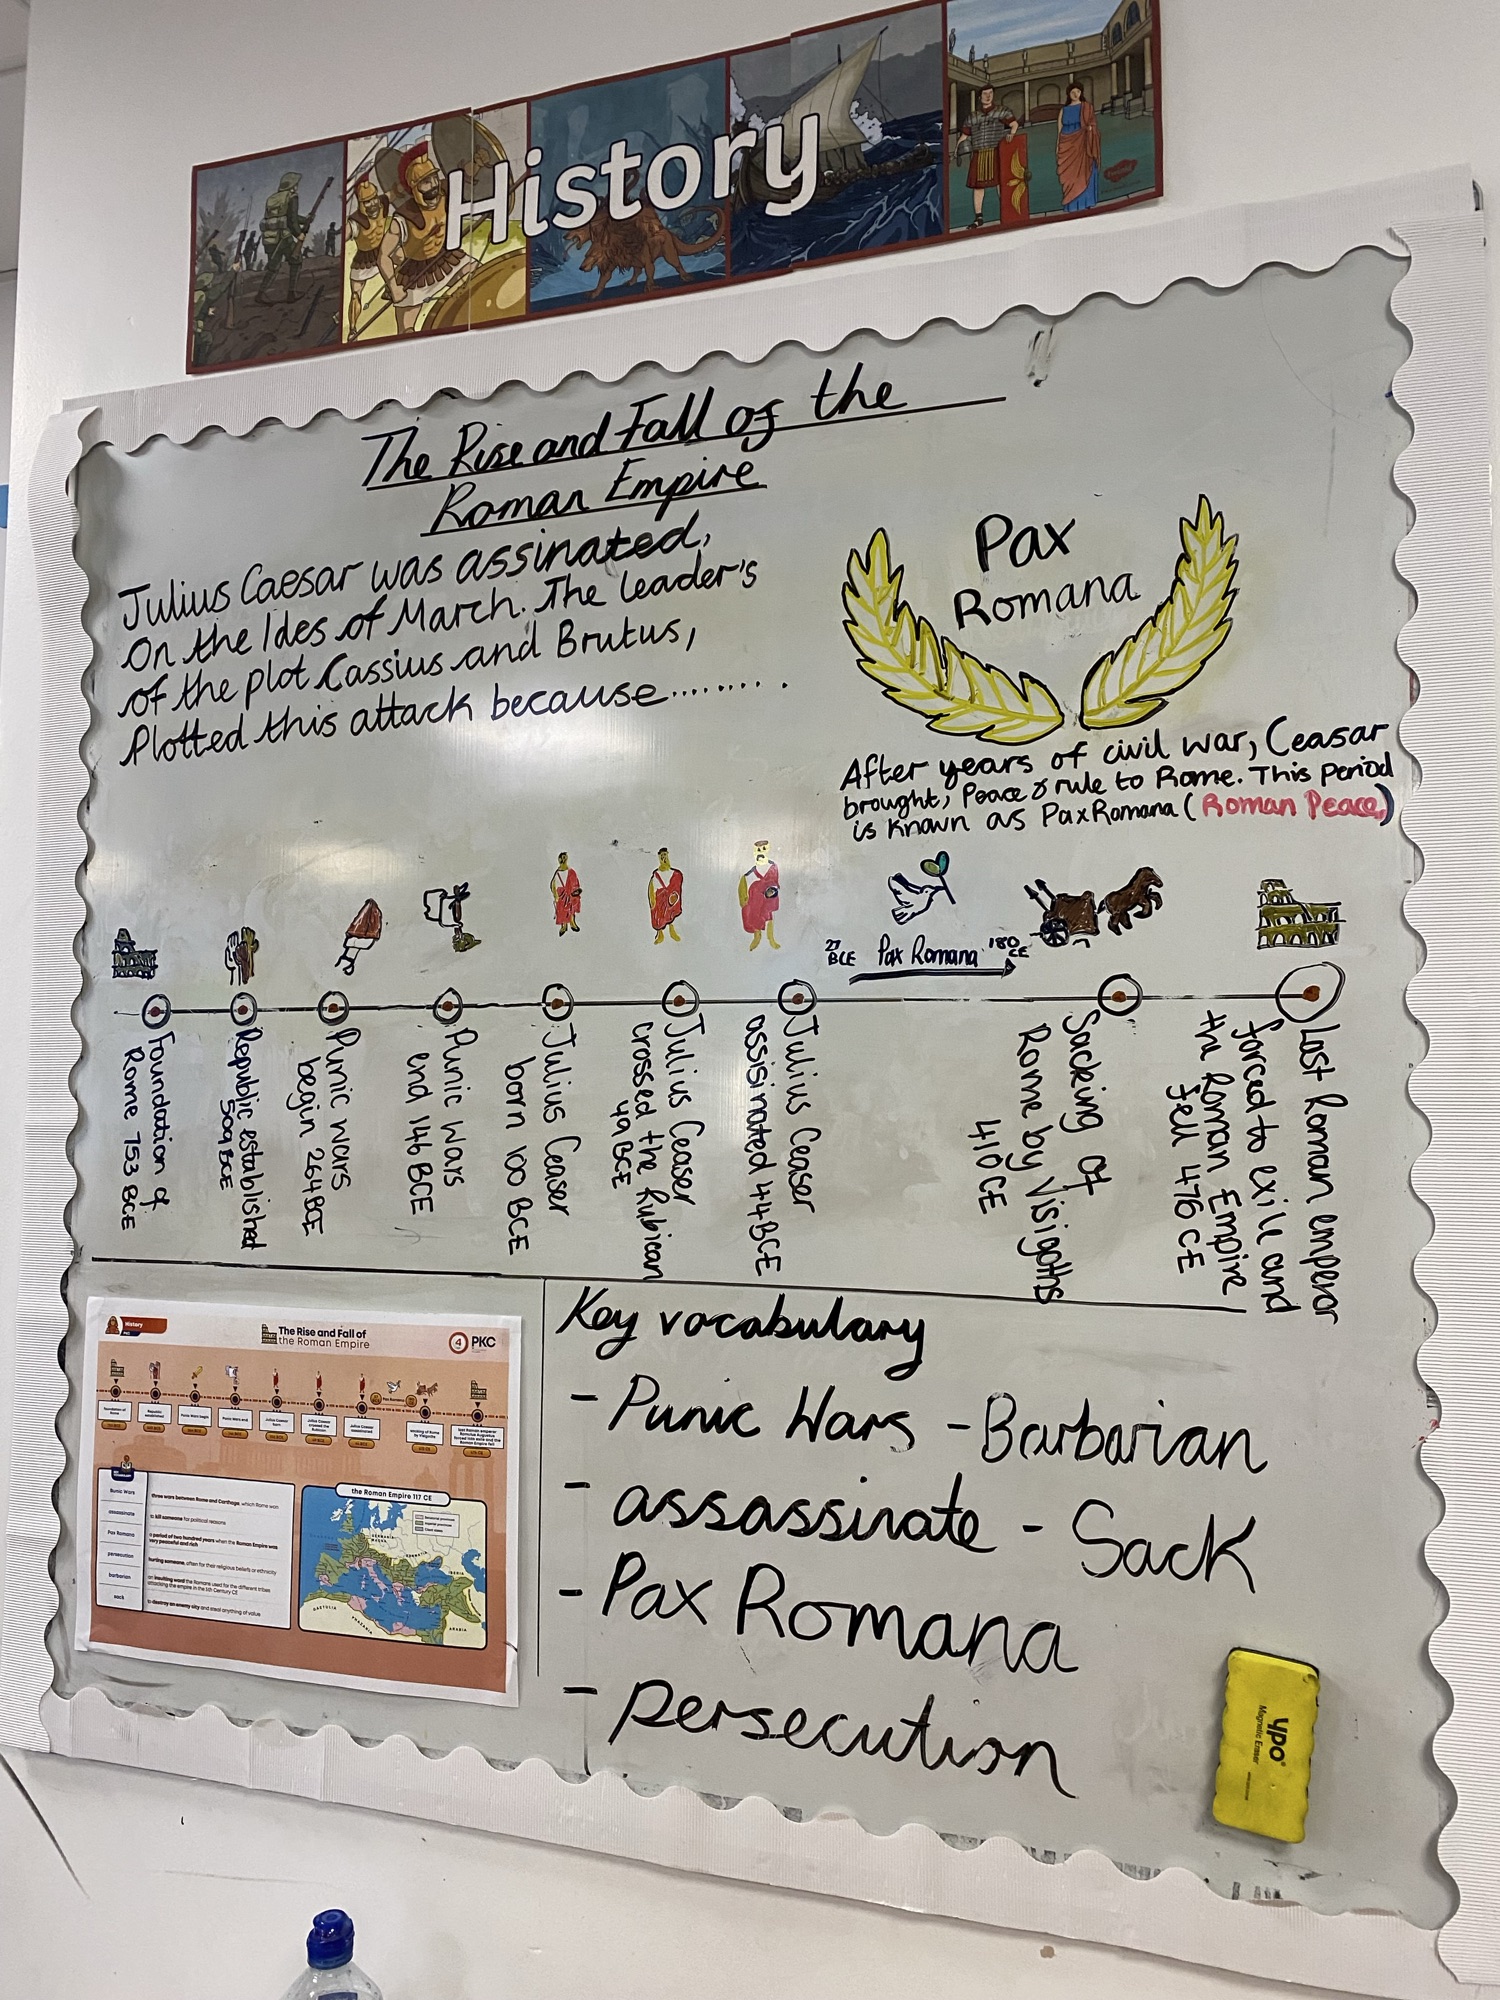 History
The Rise and Fall of the
Roman Empire
Julius Caesar was assinated,
on the Ides of March. The leader's
of the plot Cassius and Brutus,
Plotted this attack because.........
Pax
Romana
After years of civil war, Ceasar
brought, Peace & rule to Rome. This period
is known as Pax Romana (Roman Peace)
27
BCE
Pax Romana
180
CE
Foundation of
Rome 753 BCE
Republic established
509 BCE
Punic wars
begin 264 BCE
Punic wars
end 146 BCE
Julius Ceaser
born 100 BCE
Julius Ceaser
crossed the Rubican
49 BCE
Julius Ceaser
assisinated 44 BCE
Sacking of
Rome by Visigoths
410 CE
Last Roman emperor
forced to exile and
the Roman Empire
fell 476 CE
History
PKC
The Rise and Fall of
the Roman Empire
4 PKC
foundation of
Rome
Republic
established
Punic Wars begin
Punic Wars end
Julius Caesar
born
Julius Caesar
crossed the
Rubicon
Julius Caesar
assassinated
Pax Romana
sacking of Rome
by Visigoths
last Roman emperor
Romulus Augustus
forced into exile and the
Roman Empire fell
Punic Wars
three wars between Rome and Carthage, which Rome won
assassinate
to kill someone for political reasons
Pax Romana
a period of two hundred years when the Roman Empire was
very peaceful and rich
persecution
hurting someone, often for their religious beliefs or ethnicity
barbarian
an insulting word the Romans used for the different tribes
attacking the empire in the 5th Century CE
sack
to destroy an enemy city and steal anything of value
the Roman Empire 117 CE
ARABIA
Key vocabulary
- Punic Wars - Barbarian
- assassinate - Sack
- Pax Romana
- persecution
ypo
Magnetic Eraser